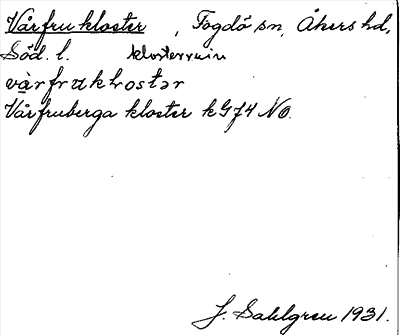 Vårfrukloster, Fogdö sn, Åkers hd,
Söd. l. klosterruin
vårfruklostər
Vårfruberga kloster kGJ4 NO.
J. Sahlgren 1931.